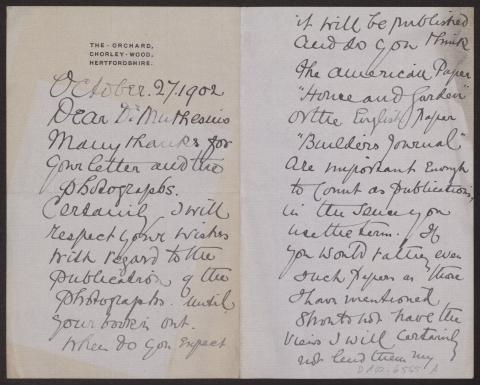 THE · ORCHARD,
CHORLEY · WOOD,
HERTFORDSHIRE.
October. 27/1902
Dear Dr Muthesius
Many thanks for
your letter and the
photographs.
Certainly I will
respect your wishes
with regard to the
publication of the
photographs. until
your book is out.
When do you expect
it will be published
And do you think
the american Paper
"House and Garden"
or the English Paper
"Builders Journal"
are important enough
to count as publications,
in the sense you
use the term. If
you would rather even
such papers as those
I have mentioned
should not have the
views I will certainly
not lend them my